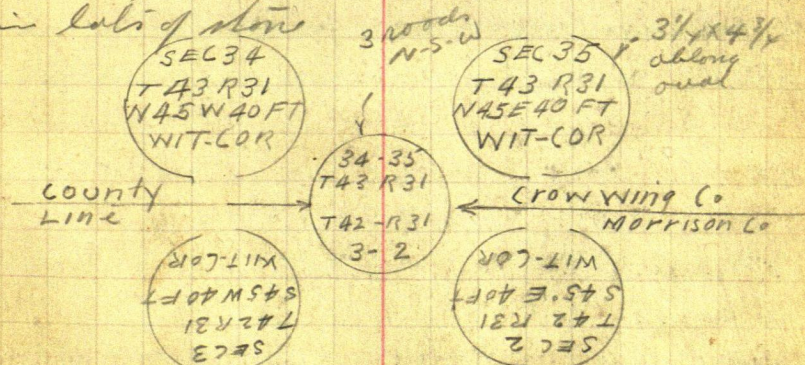 in lots of stone
3 roads
N-S-W
3 1/4 x 4 3/4
oblong
oval
SEC 34
T 43 R31
N45W40FT
WIT-COR
SEC 35
T 43 R31
N45E40FT
WIT-COR
34-35
T43 R31
T42-R31
3-2
County
Line
Crow Wing Co
Morrison Co
SEC3
T42R31
S45W40FT
WIT-COR
SEC 2
T 42 R31
S45°E 40FT
WIT-COR